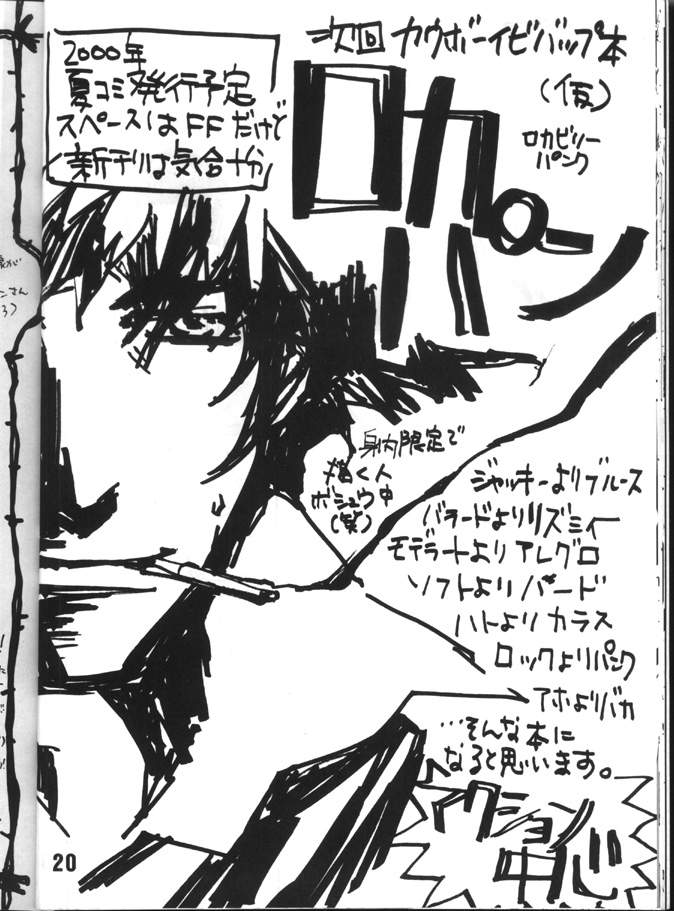 次回 カウボーイビバップ本
(仮)
ロカパン
ロカビリー
パンク
2000年
夏コミ発行予定
スペースはFFだけど
新刊は気合十分
身内限定で
描く人
ボシュウ中
(笑)
ジャッキーよりブルース
バラードよりリズミィー
モデラートよりアレグロ
ソフトよりハード
ハトよりカラス
ロックよりパンク
アホよりバカ
…そんな本に
なると思います。
アクション
中心
20